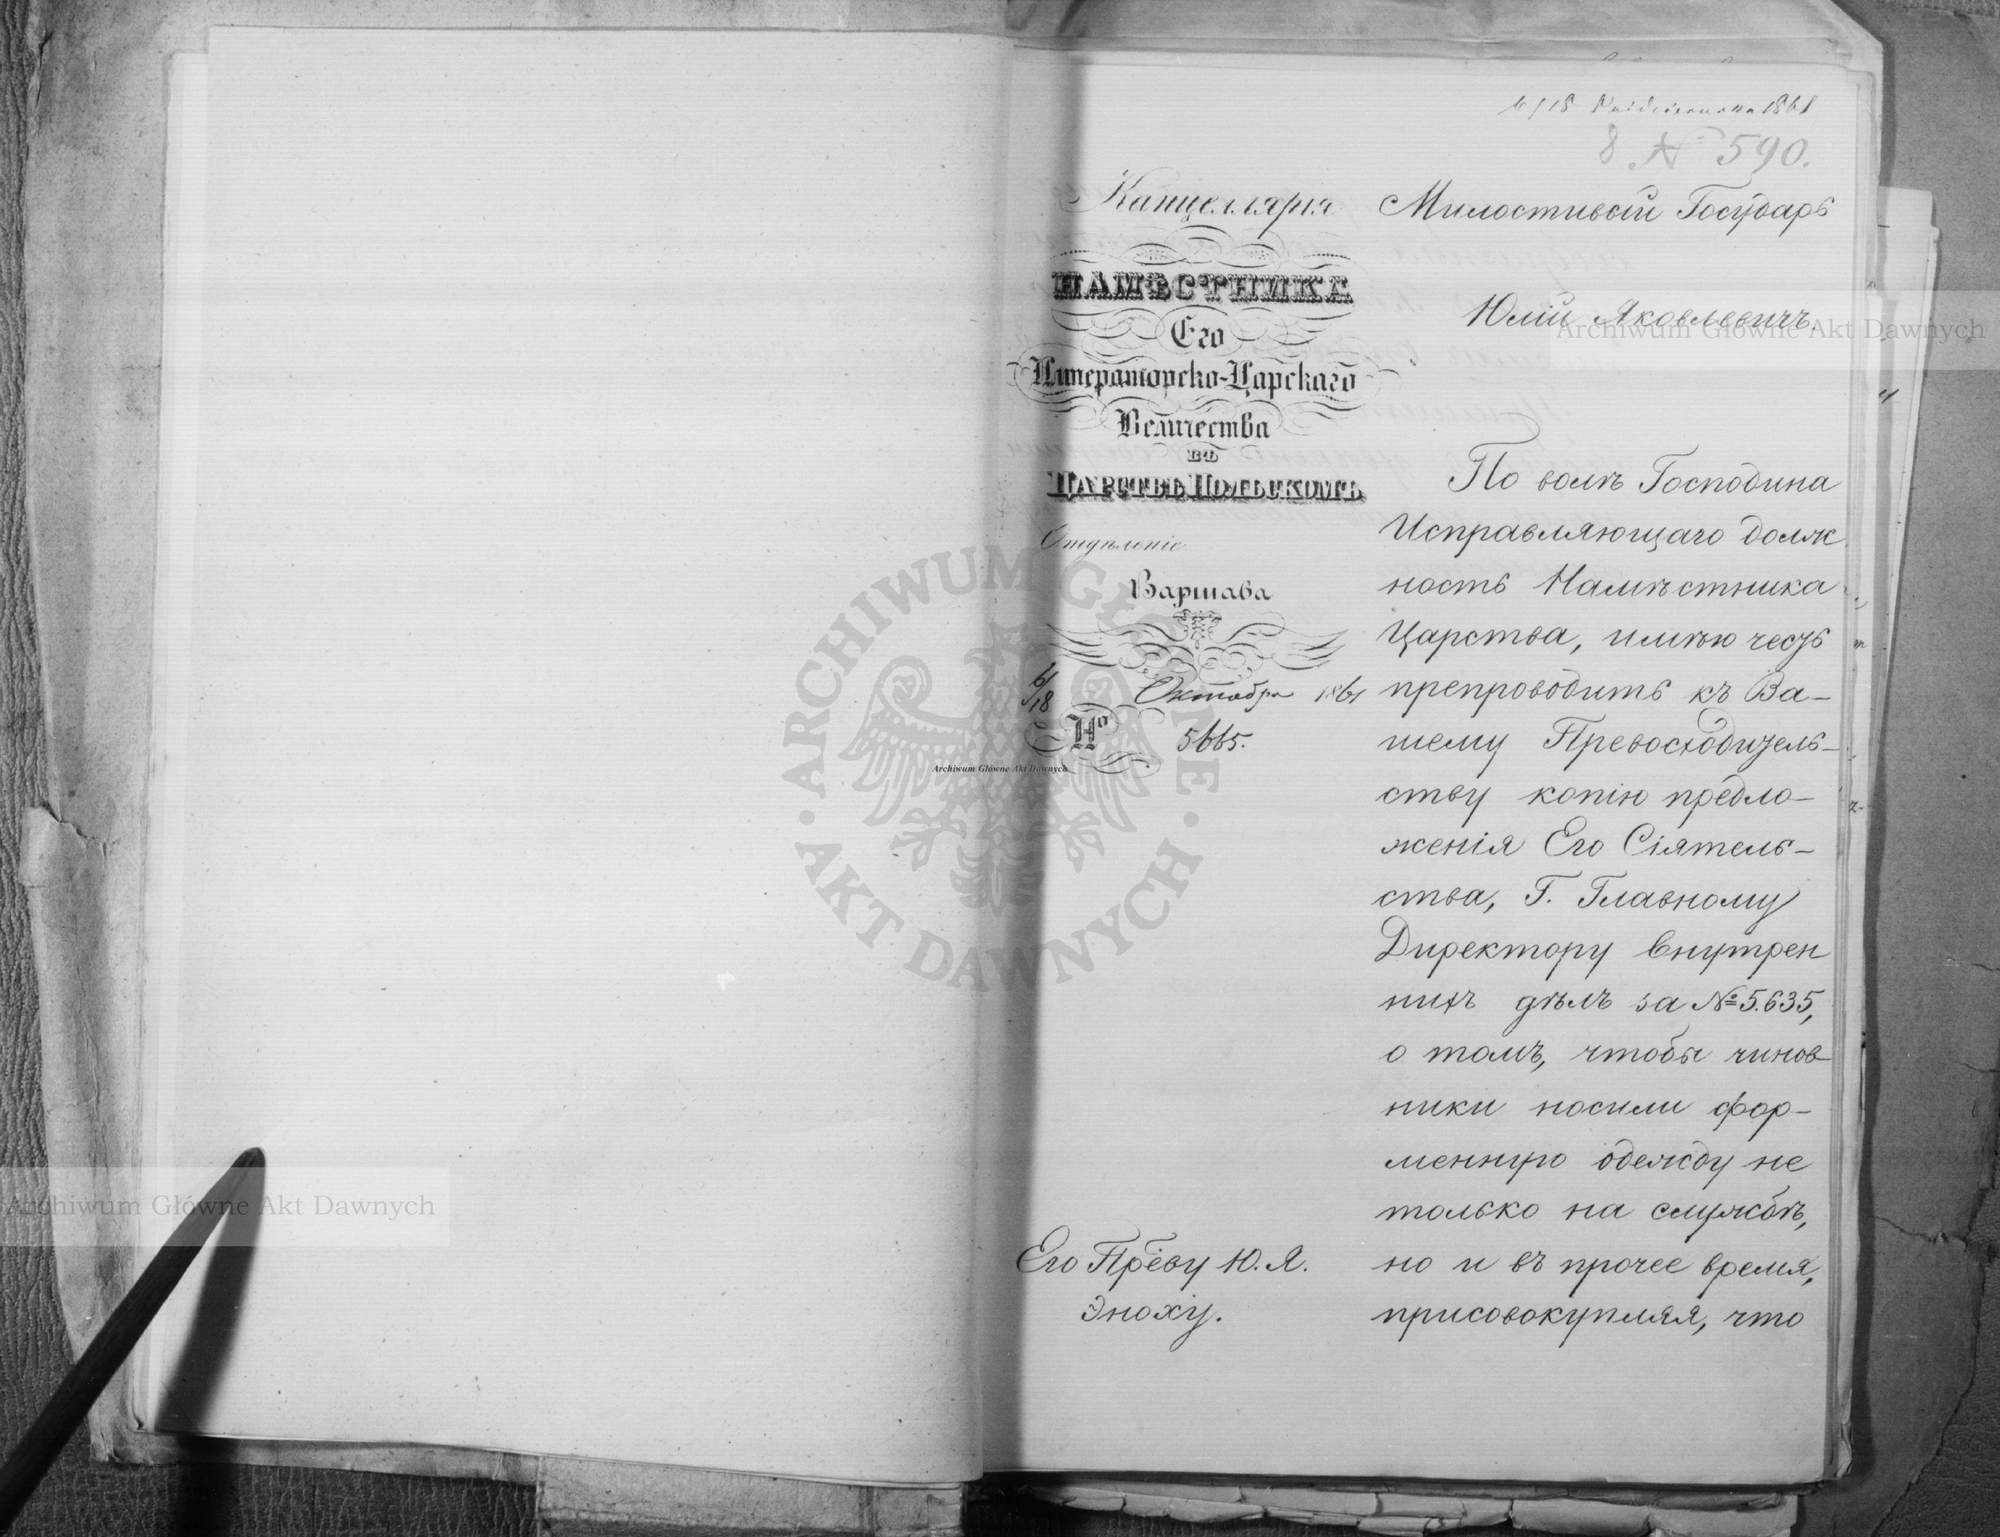 6/18 Października 1861
8 № 590.
Канцеллярія
НАМѢСТНИКА
Его
Императорско-Царскаго
Величества
въ
Царствѣ Польскомъ
Отдѣленіе
Варшава
6/18 Октября 1861
№ 5665.
Его Прев̃у Ю. Я.
Эноху.
Милостивый Государь
Юлій Яковлевичъ.
По волѣ Господина
Исправляющаго долж
ность Намѣстника
Царства, имѣю честь
препроводить къ Ва-
шему Превосходитель-
ству копію предло-
женія Его Сіятель-
ства, Г. Главному
Директору Внутрен
нихъ дѣлъ за № 5.635,
о томъ, чтобы чинов-
ники носили фор-
менную одежду не
только на службѣ,
но и въ прочее время,
присовокупляя, что
Archiwum Główne Akt Dawnych
Archiwum Główne Akt Dawnych
Archiwum Główne Akt Dawnych
ARCHIWUM GŁÓWNE · AKT DAWNYCH ·